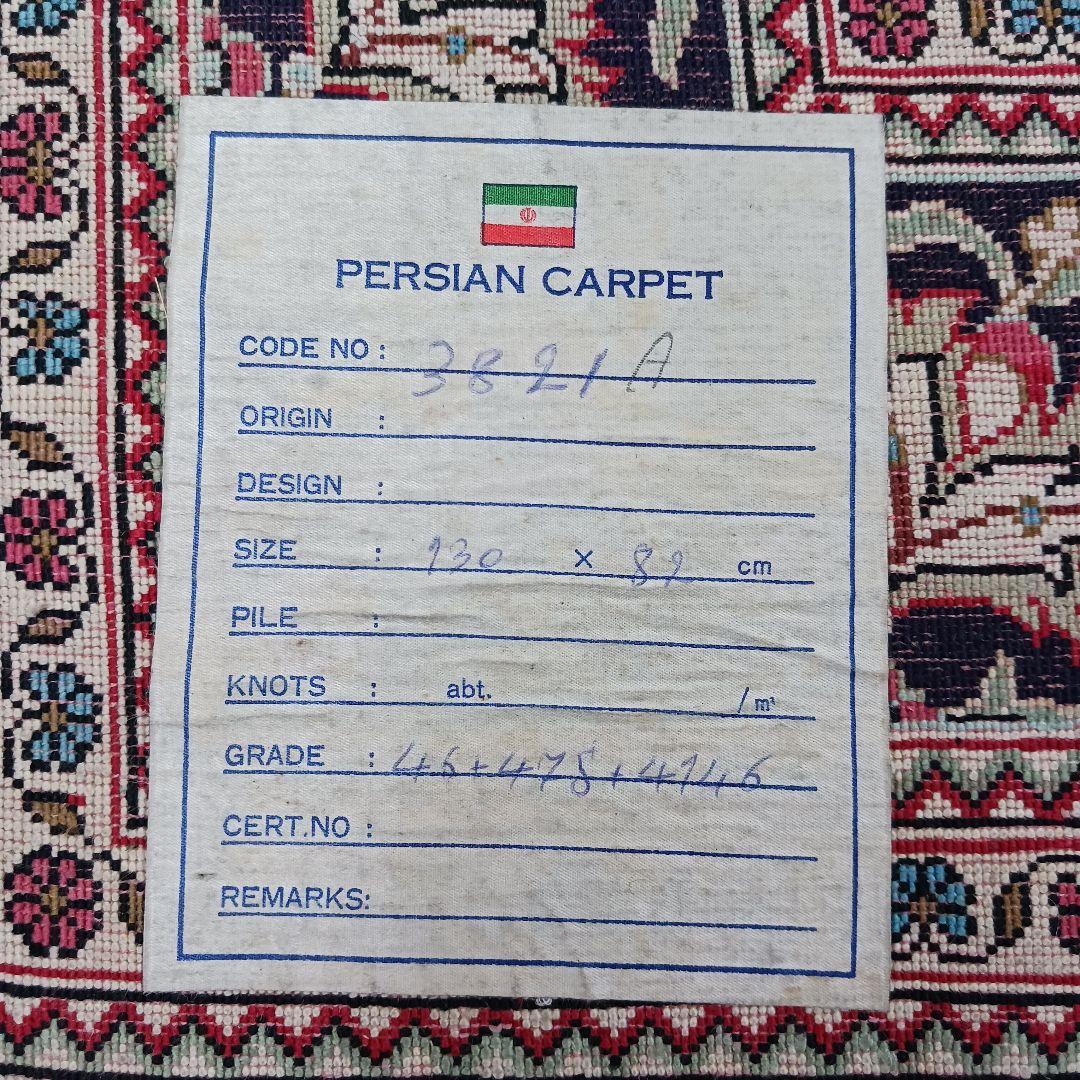 PERSIAN CARPET
CODE NO : 3821 A
ORIGIN :
DESIGN :
SIZE : 130 x 82 cm
PILE :
KNOTS : abt. /m²
GRADE : 46+478+4146
CERT.NO :
REMARKS: